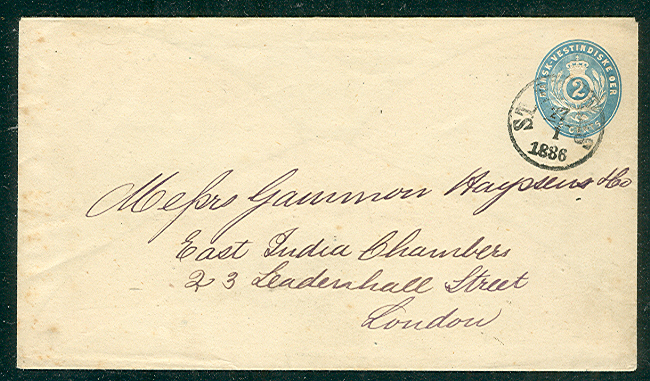 DANSK-VESTINDISKE ØER
2
2 CENTS
ST. THOMAS
27
1
1886
Messrs Gammon Haypsens & Co
East India Chambers
23 Leadenhall Street
London